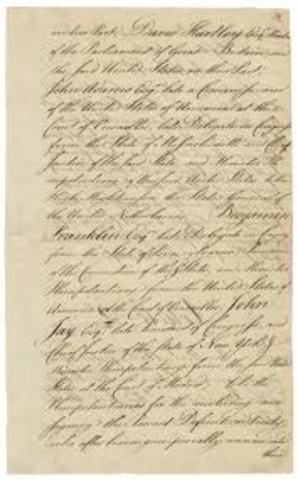 on their Part, David Hartley Esqr. Member
of the Parliament of Great Britain, and
the said United States on their Part,
John Adams Esqr. late a Commissioner
of the United States of America at the
Court of Versailles, late Delegate in Congress
from the State of Massachusetts and Chief
Justice of the said State, and Minister
Plenipotentiary of the said United States to their
High Mightinesses the States General of
the United Netherlands; Benjamin
Franklin Esqr. late Delegate in Congress
from the State of Pennsylvania, President
of the Convention of the sd State, and Minister
Plenipotentiary from the United States of
America at the Court of Versailles; John
Jay Esqr. late President of Congress, and
Chief Justice of the State of New York &
Minister Plenipotentiary from the said United
States at the Court of Madrid; to be the
Plenipotentiaries for the concluding and
signing the present Definitive Treaty;
who after having reciprocally communicated
their